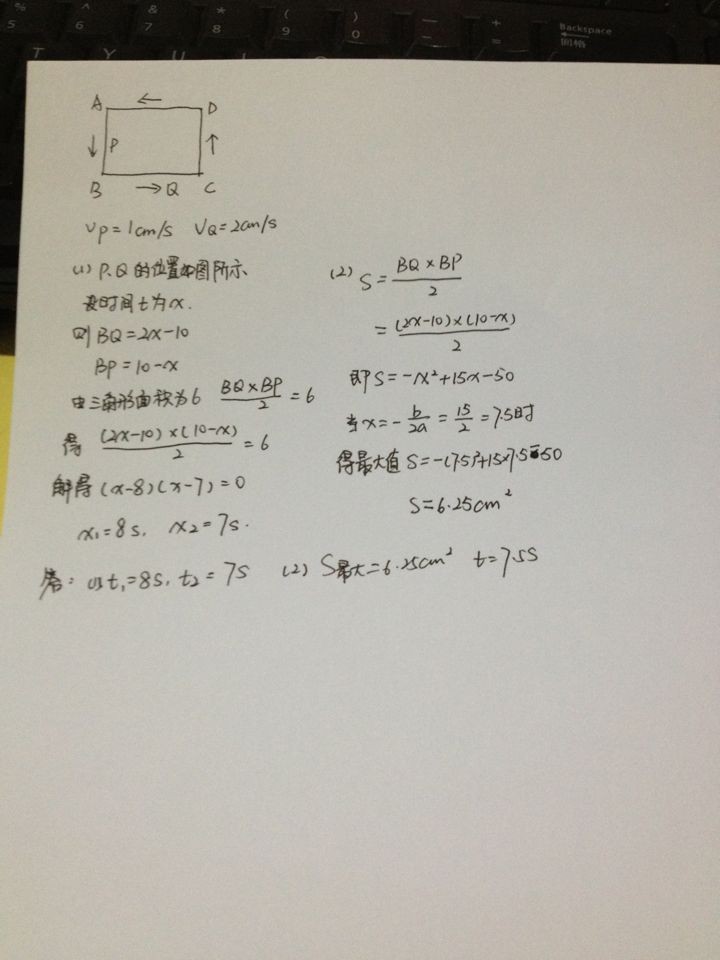 % 5
^ 6
& 7
* 8
( 9
) 0
— -
+ =
Backspace
回格
T Y U
A ← D
↓ P ↑
B → Q C
Vp=1cm/s VQ=2cm/s
(1) P.Q的位置如图所示
设时间t为x.
则BQ=2x-10
BP=10-x
由三角形面积为6 BQ×BP/2=6
得 (2x-10)×(10-x)/2=6
解得(x-8)(x-7)=0
x₁=8s, x₂=7s.
(2) S=BQ×BP/2
=(2x-10)×(10-x)/2
即S=-x²+15x-50
当x=-b/2a=15/2=7.5时
得最大值S=-(7.5)²+15×7.5-50
S=6.25cm²
答: (1)t₁=8s, t₂=7s (2) S最大=6.25cm² t=7.5s